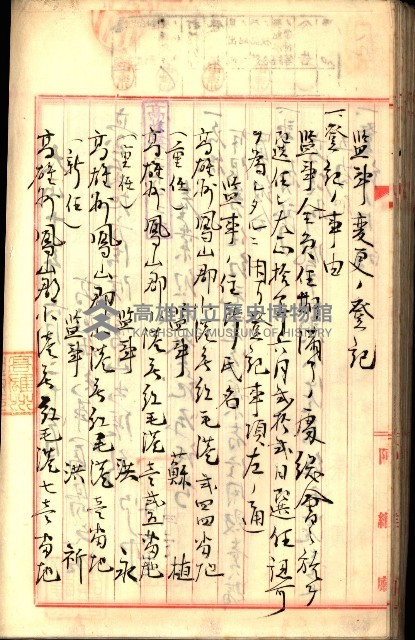 監事変更ノ登記
一、登記ノ事由
監事全員任期満了ノ處総會ニ於テ
選任シ大正拾 年六月弐拾弐日選任認可
ヲ為シタルニ因リ登記事項左ノ通
監事ノ住所氏名
高雄州鳳山郡小港庄紅毛港弐四四番地
(重任) 監事 蘇 植
高雄州鳳山郡小港庄紅毛港壱弐五番地
(重任) 監事 洪 永
高雄州鳳山郡小港庄紅毛港 番地
(新任) 監事 洪 祈
高雄州鳳山郡小港庄紅毛港七壱番地
高雄市立歷史博物館
KAOHSIUNG MUSEUM OF HISTORY